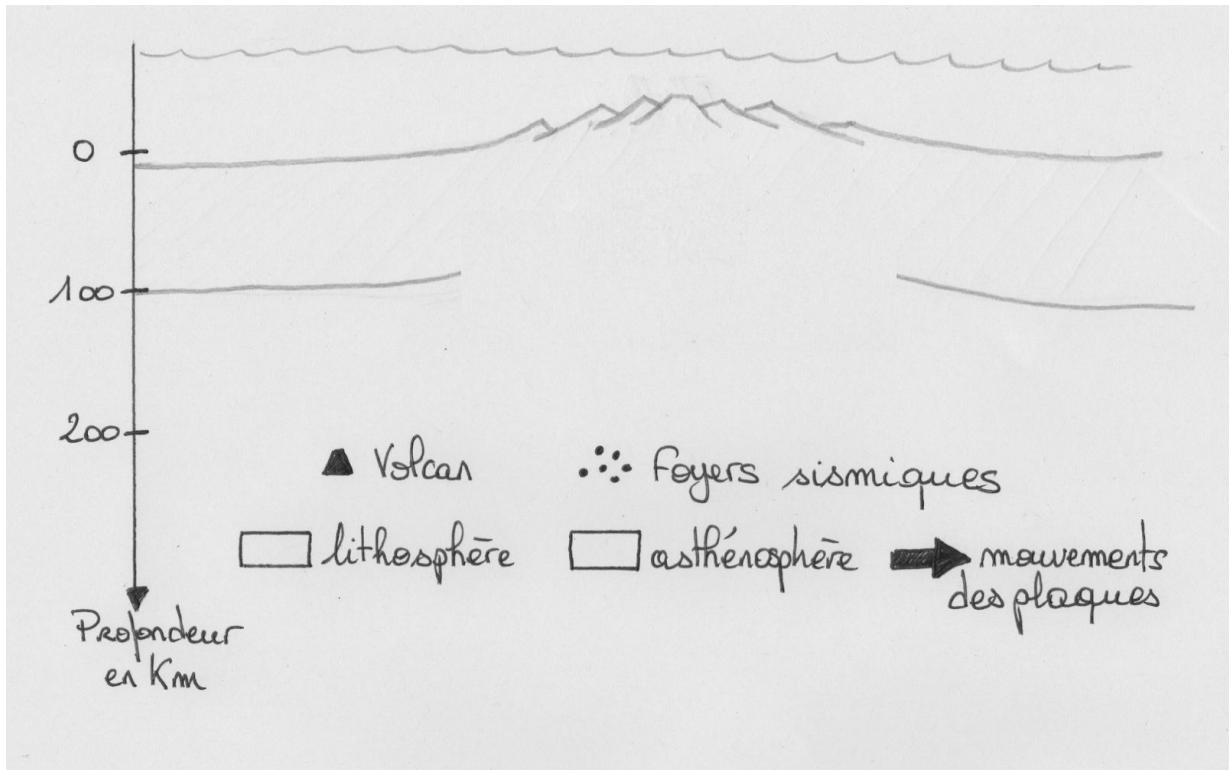 0
100
200
Volcan
Foyers sismiques
lithosphère
asthénosphère
mouvements
des plaques
Profondeur
en Km